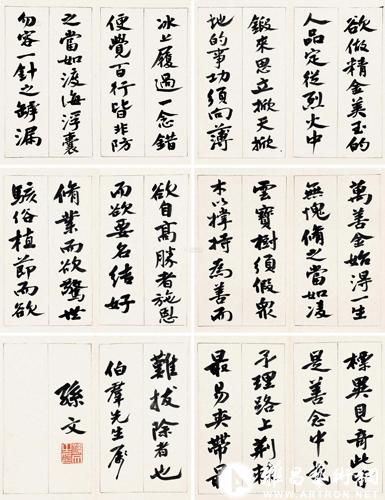 欲做精金美玉的
人品定從烈火中
鍛來思立掀天掀
地的事功須向薄
冰上履過一念錯
便覺百行皆非防
之當如渡海浮囊
勿容一針之罅漏
萬善全始得一生
無愧脩之當如凌
雲寶樹須假衆
木以撐持為善而
欲自高勝者施恩
而欲要名結好
脩業而欲驚世
駭俗植節而欲
標異見奇此
是善念中戈
矛理路上荊棘
最易夾帶最
難拔除者也
伯羣先生屬
孫文
雅昌藝術網
WWW.ARTRON.NET